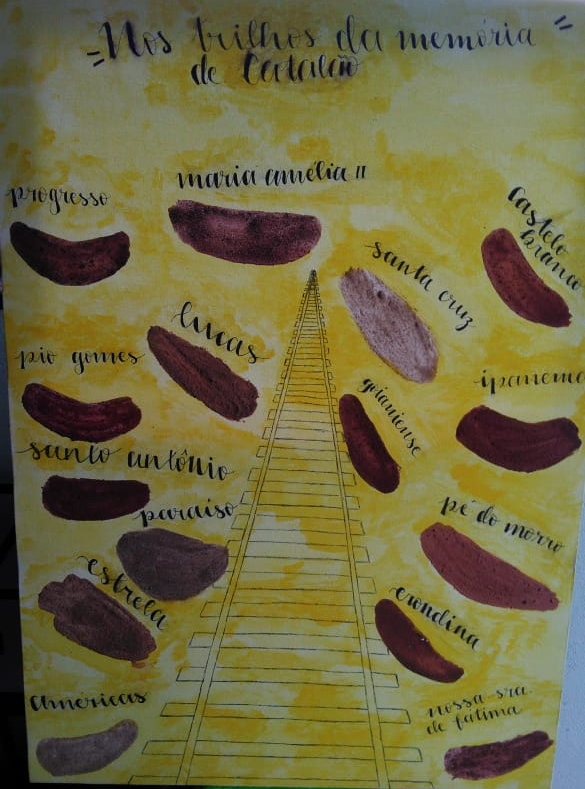 Nos trilhos da memória
de Catalão
maria amélia II
progresso
castelo
branco
santa cruz
lucas
pio gomes
ipanema
goianiense
santo antônio
paraiso
pé do morro
estrela
erondina
américas
nossa sra.
de fátima